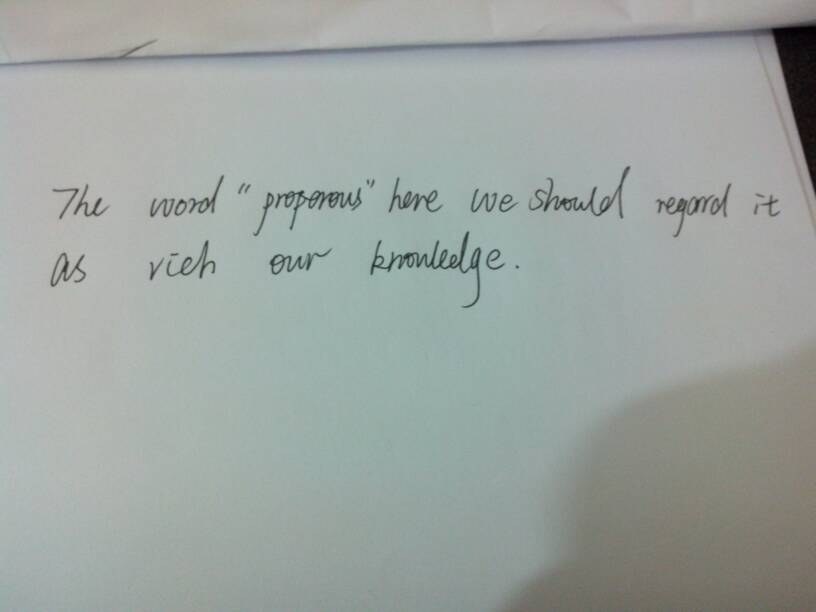 The word "properous" here we should regard it
as rich our knowledge.